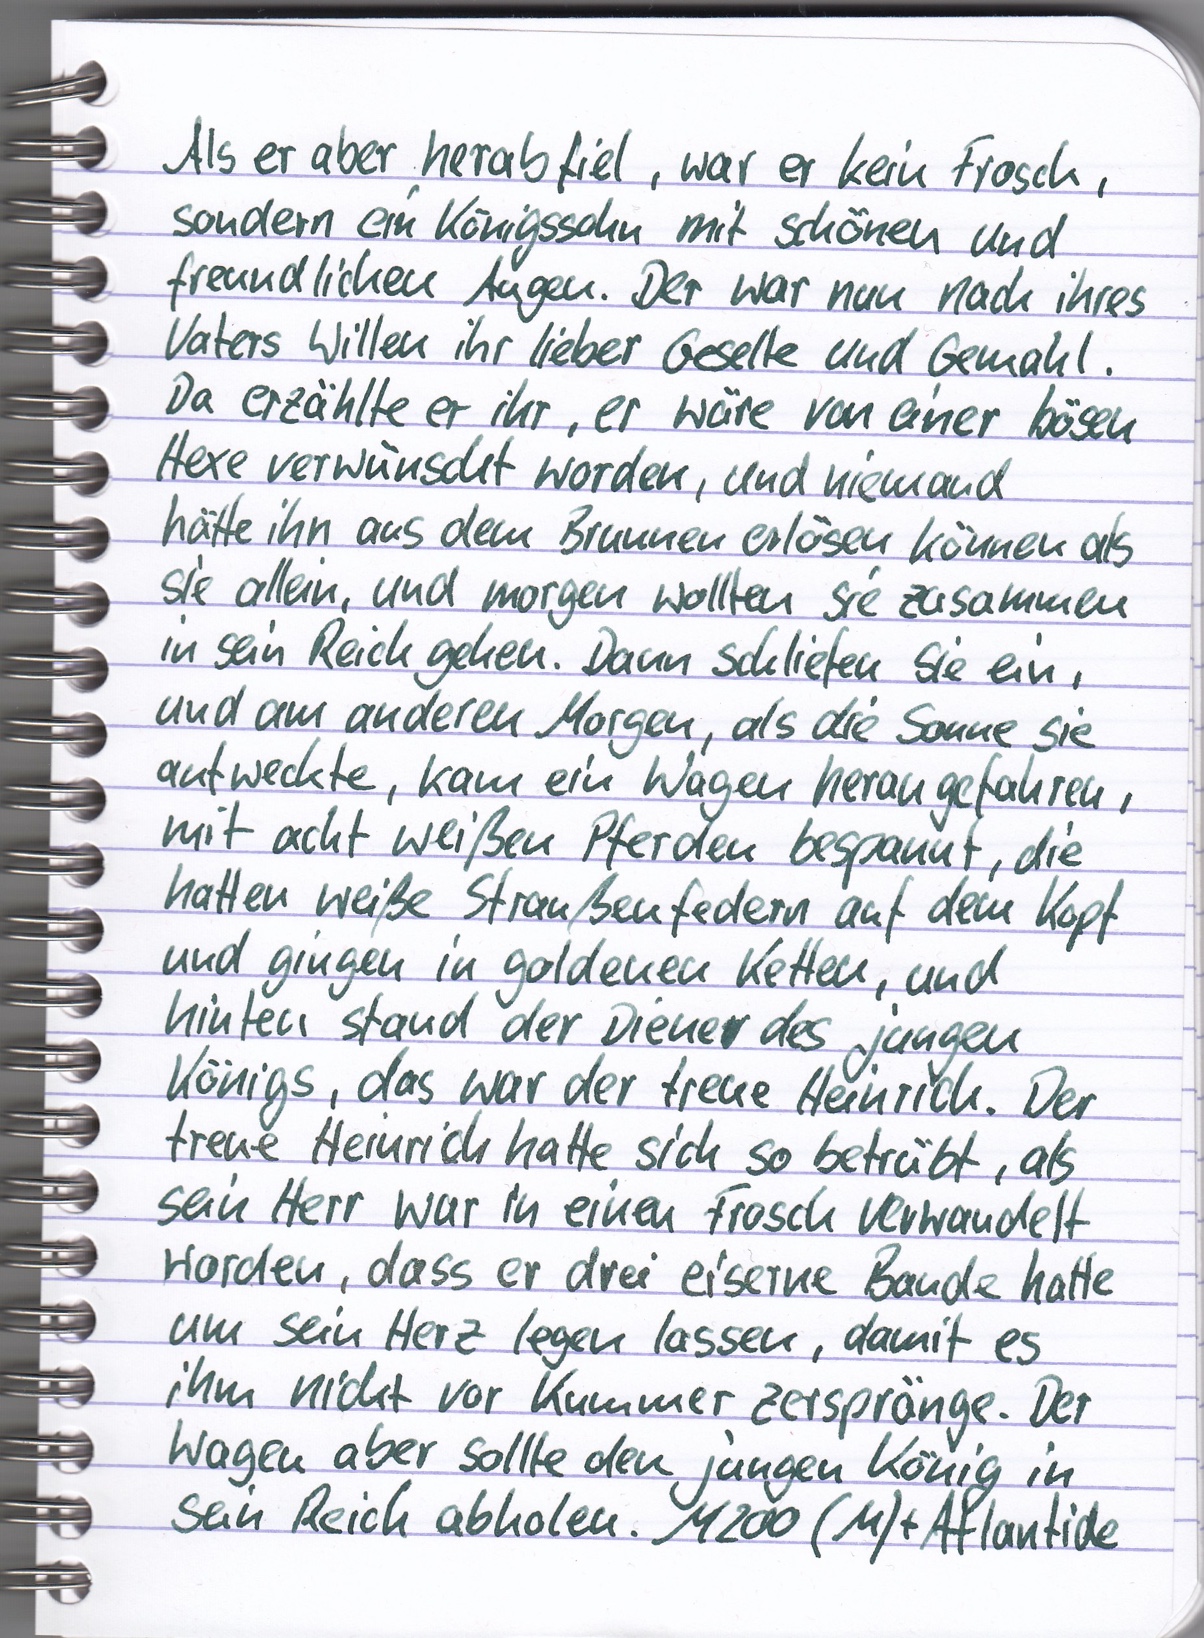 Als er aber herabfiel, war er kein Frosch,
sondern ein Königssohn mit schönen und
freundlichen Augen. Der war nun nach ihres
Vaters Willen ihr lieber Geselle und Gemahl.
Da erzählte er ihr, er wäre von einer bösen
Hexe verwünscht worden, und niemand
hätte ihn aus dem Brunnen erlösen können als
sie allein, und morgen wollten sie zusammen
in sein Reich gehen. Dann schliefen sie ein,
und am anderen Morgen, als die Sonne sie
aufweckte, kam ein Wagen herangefahren,
mit acht weißen Pferden bespannt, die
hatten weiße Straußenfedern auf dem Kopf
und gingen in goldenen Ketten, und
hinten stand der Diener des jungen
Königs, das war der treue Heinrich. Der
treue Heinrich hatte sich so betrübt, als
sein Herr war in einen Frosch verwandelt
worden, dass er drei eiserne Bande hatte
um sein Herz legen lassen, damit es
ihm nicht vor Kummer zerspränge. Der
Wagen aber sollte den jungen König in
sein Reich abholen. M200 (M) + Atlantide